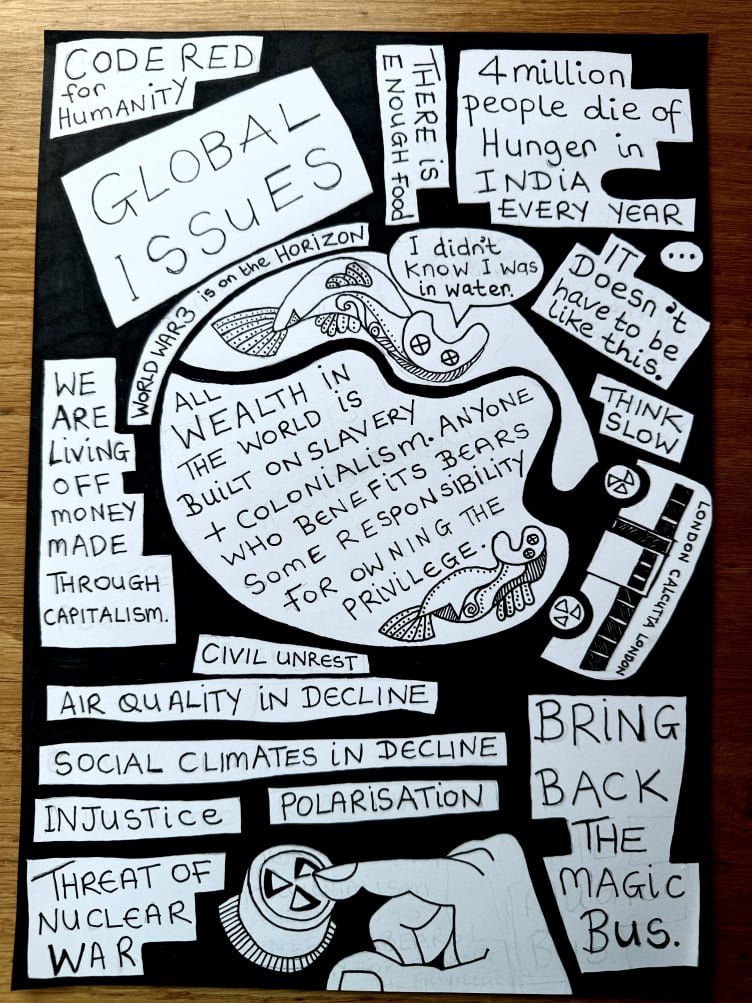 CODE RED
for
HUMANITY
GLOBAL
ISSUES
THERE IS
ENOUGH FOOD
4 million
people die of
Hunger in
INDIA
EVERY YEAR
...
IT
Doesn't
have to be
like this.
THINK
SLOW
WORLD WAR 3 is on the HORIZON
I didn't
know I was
in water.
WE
ARE
LIVING
OFF
MONEY
MADE
THROUGH
CAPITALISM.
ALL
WEALTH IN
THE WORLD IS
BUILT ON SLAVERY
+ COLONIALISM. ANYONE
WHO BENEFITS BEARS
SOME RESPONSIBILITY
FOR OWNING THE
PRIVILEGE.
LONDON CALCUTTA LONDON
CIVIL UNREST
AIR QUALITY IN DECLINE
SOCIAL CLIMATES IN DECLINE
INJUSTICE
POLARISATION
THREAT OF
NUCLEAR
WAR
BRING
BACK
THE
MAGIC
BUS.